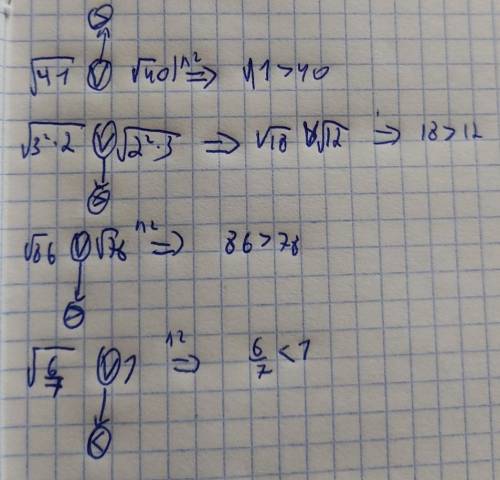 >
√41 ∨ √40 |^2 ⇒ 41 > 40
√3²·2 ∨ √2²·3 ⇒ √18 ∨ √12 ⇒ 18 > 12
>
√86 ∨ √78 ^2 ⇒ 86 > 78
>
√6/7 ∨ 1 ^2 ⇒ 6/7 < 1
<